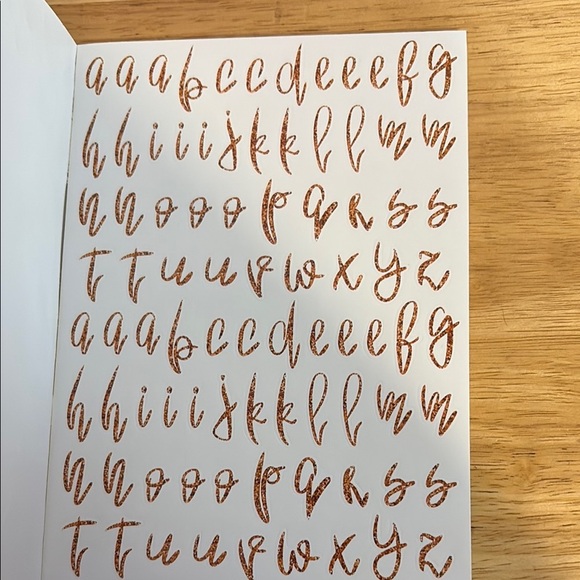 a a a b c c d e e e f g
h h i i i j k k l l m m
n n o o o p q r s s
t t u u v w x y z
a a a b c c d e e e f g
h h i i i j k k l l m m
n n o o o p q r s s
t t u u v w x y z